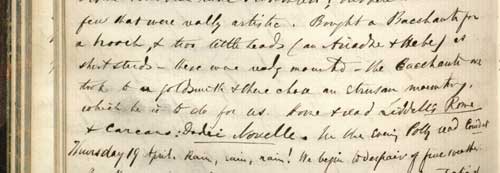 few that were really artistic. Bought a Bacchante for
a brooch, & two little heads (an Ariadne & Hebe) as
shirt studs – these were ready mounted – the Bacchante we
took to a goldsmith & there chose an Etruscan mounting,
which he is to do for us. Home & read Liddell's Rome
& Carcano: Dodici Novelle. In the evening Polly read
Thursday 19 April. Rain, rain, rain! We begin to despair of fine weather